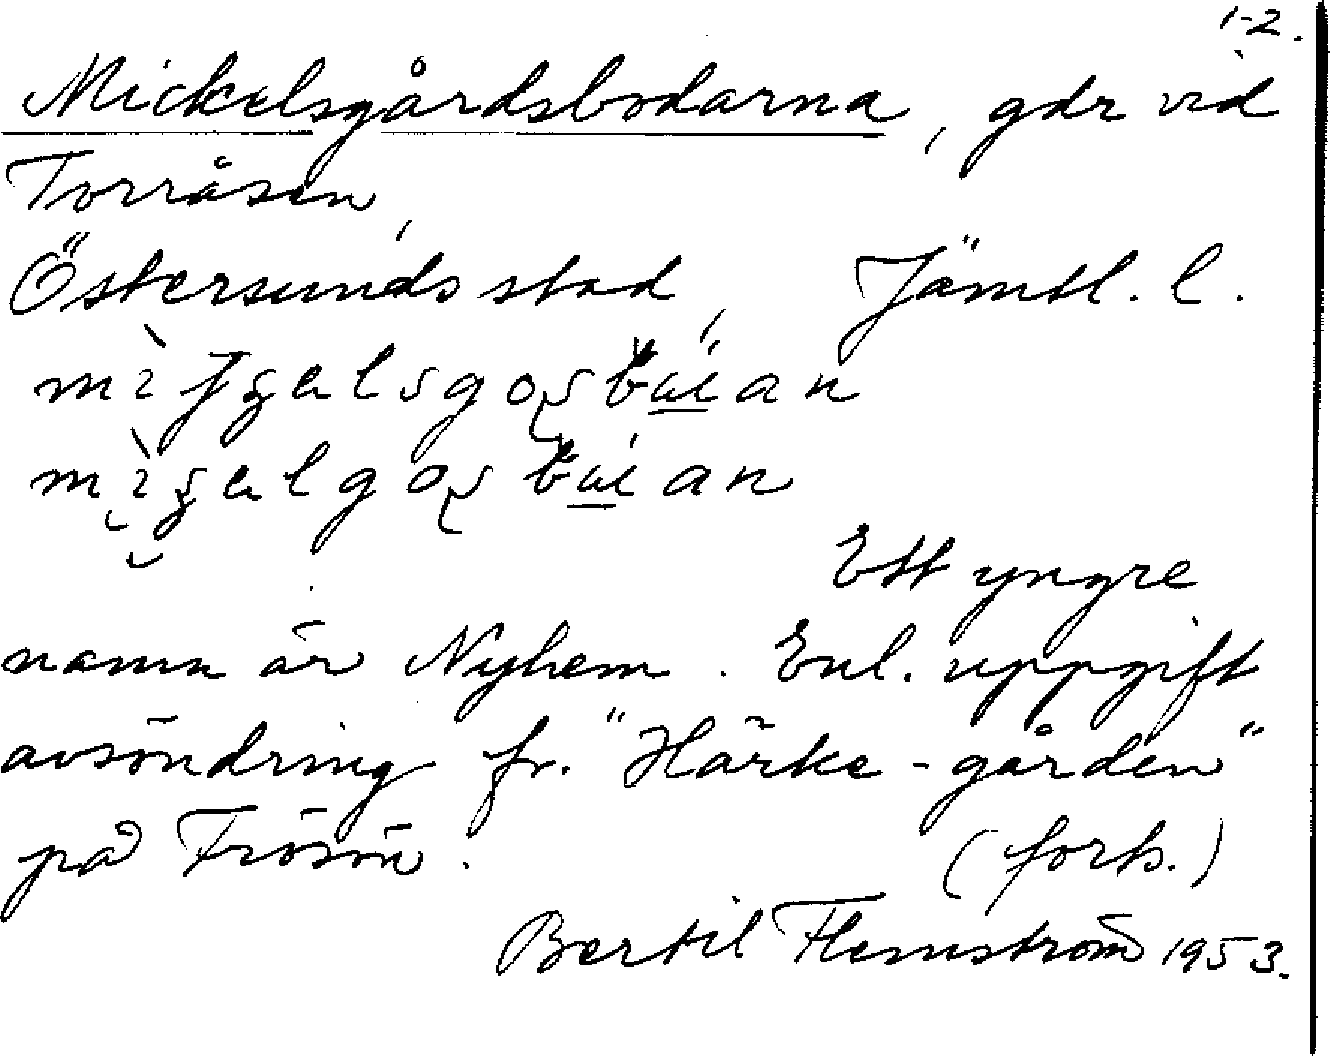 1-2.
Mickelsgårdsbodarna, gdr vid
Torråsen,
Östersunds stad, Jämtl. l.
Ett yngre
namn är Nyhem. Enl. uppgift
avsöndring fr. "Härke-gården"
på Frösön. (forts.)
Bertil Flemström 1953.